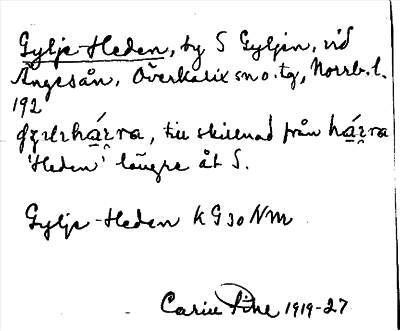 Gylje-Heden, by S Gyljen, vid
Ängesån, Överkalix sn o. tg, Norrb. l.
192
, till skillnad från
'Heden' längre åt S.
Gylje-Heden K G30 NM
Carin Pihl 1919-27